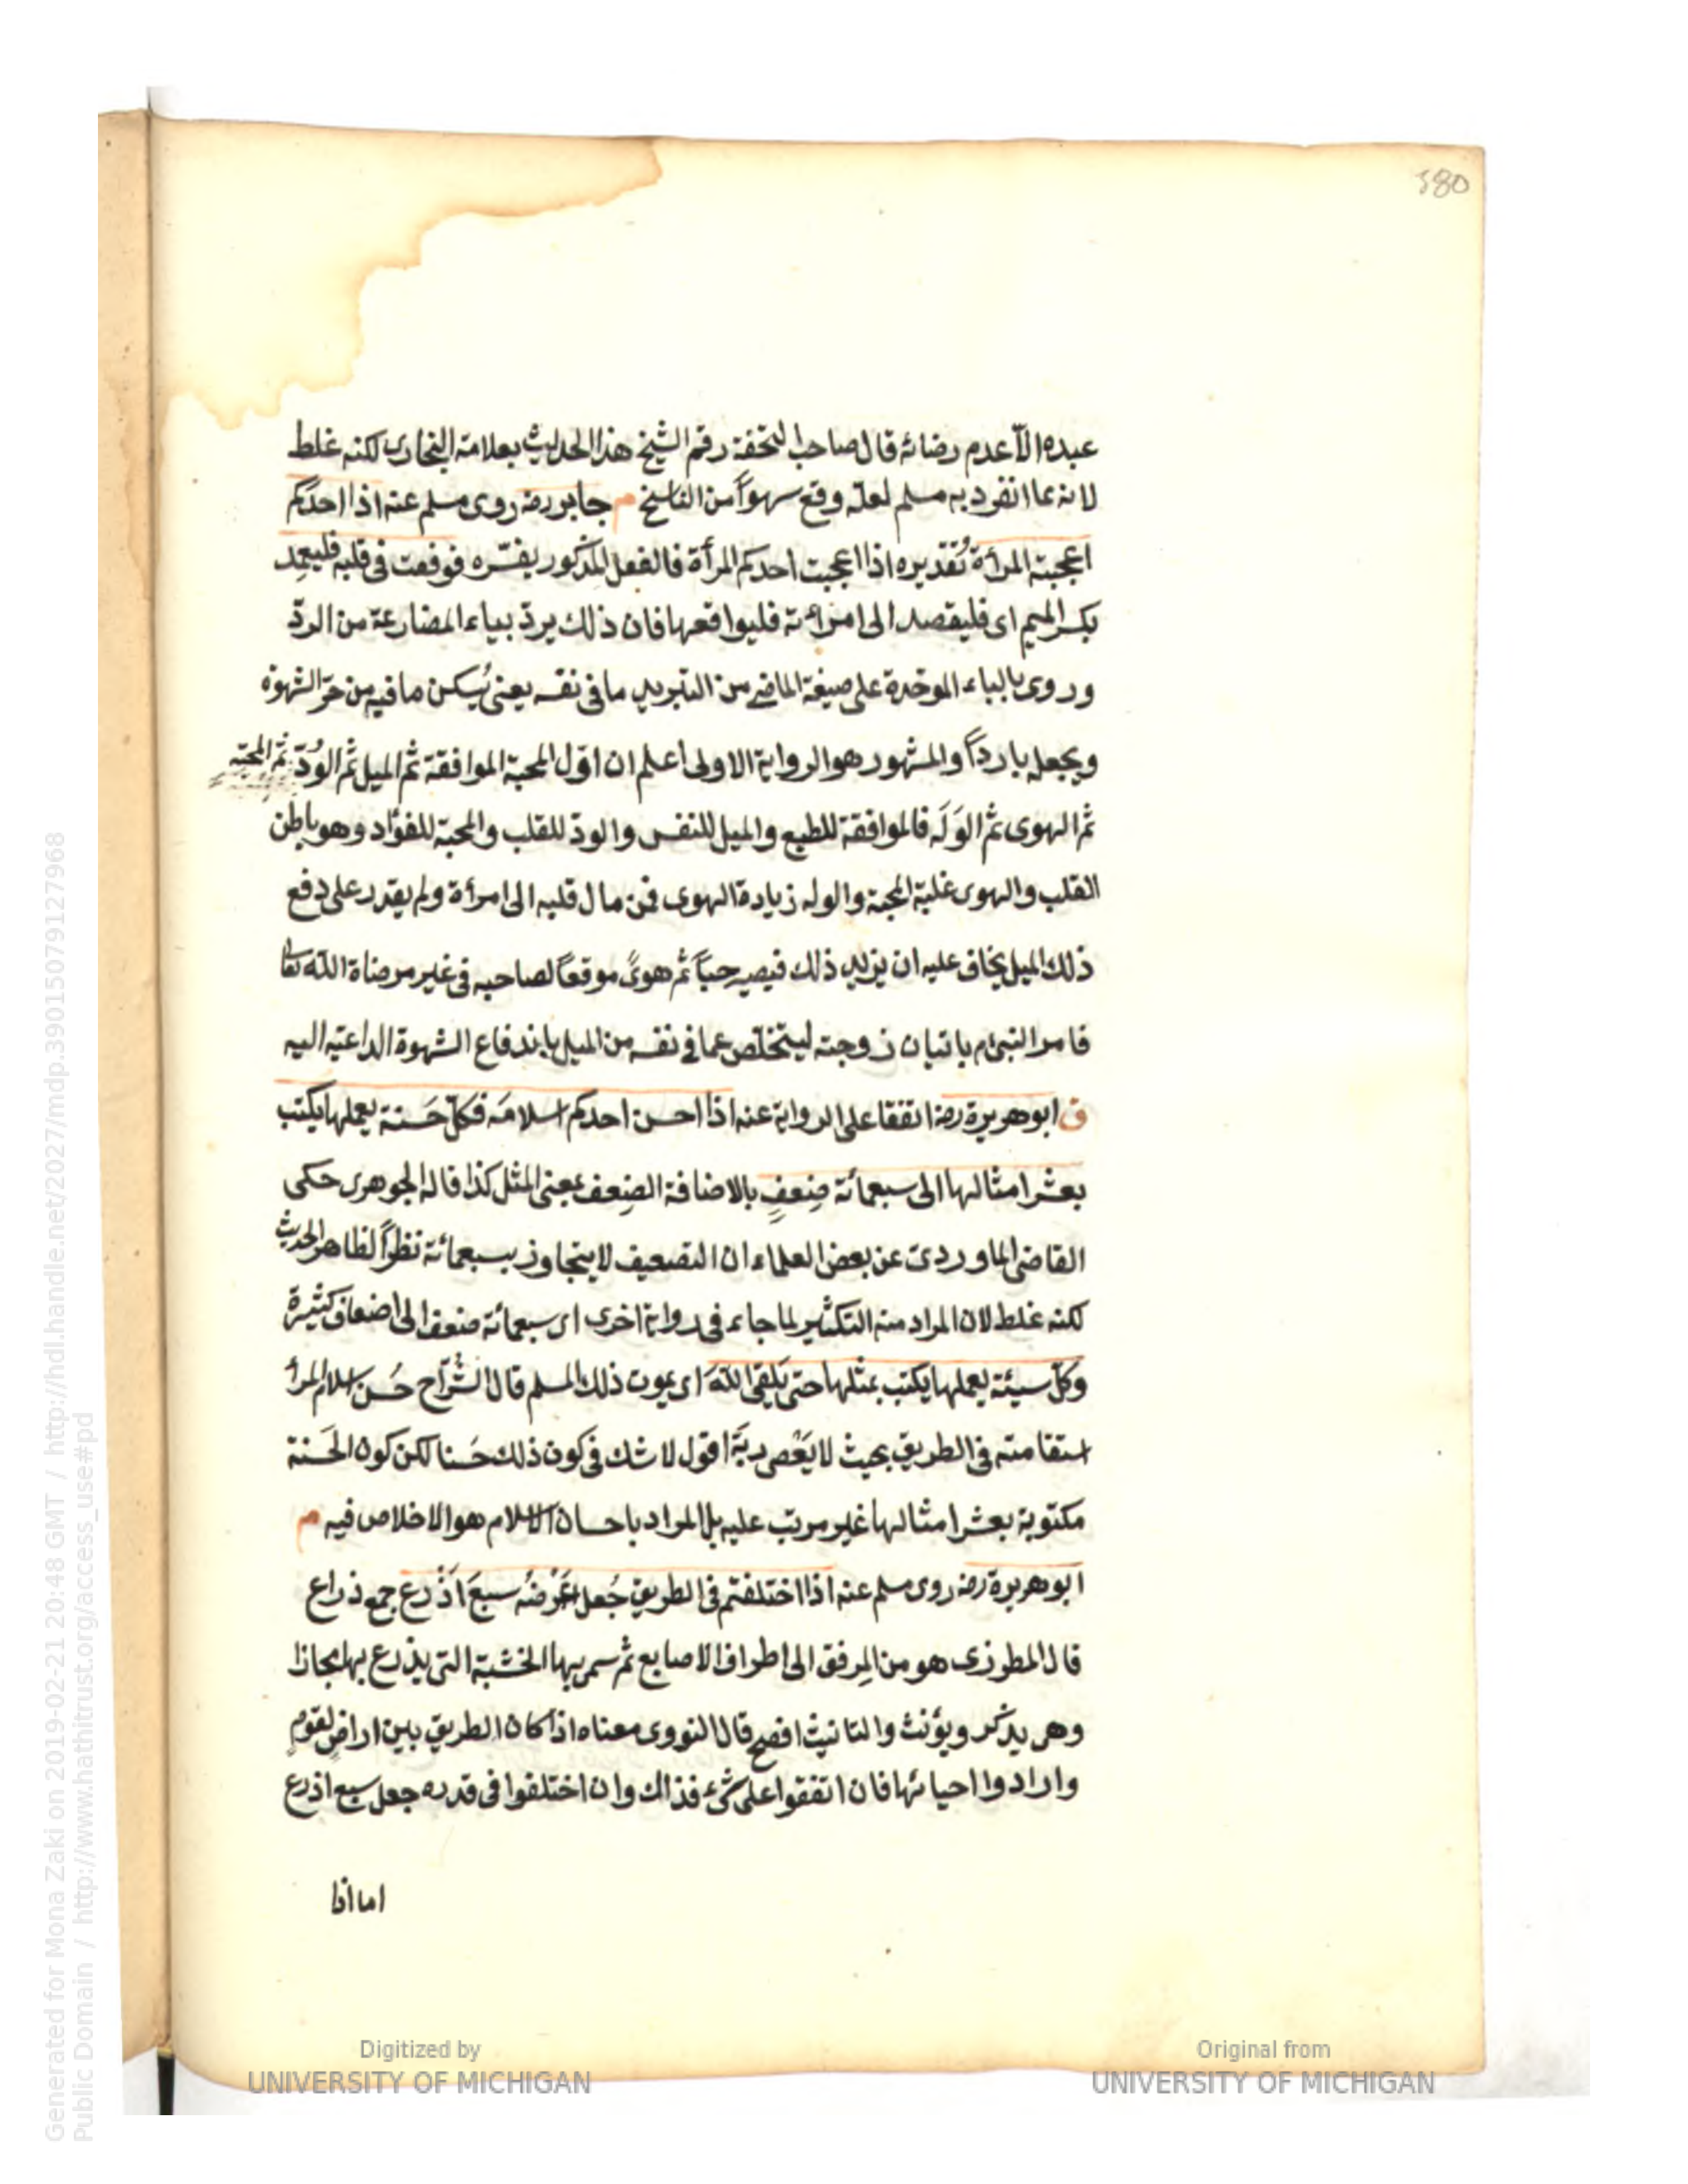 380
عبده الّا عدم رضائه قال صاحب التحفة رقم الشيخ هذا الحديث بعلامة البخارى لكنه غلط
لانه مما انفرد به مسلم لعله وقع سهواً من الناسخ م جابر رضه روى مسلم عنه اذا احدكم
اعجبته المرأة تقديره اذا اعجبت احدكم المرأة فالفعل المذكور يفسّره فوقعت فى قلبه فليعمِد
بكسر الميم اى فليقصد الى امرأته فليواقعها فان ذلك يردّ بياء المضارعة من الردّ
وروى بالباء الموحّدة على صيغة الماضى من التبريد ما فى نفسه يعنى يُسكن ما فيه من حرّ الشهوة
ويجعله بارداً والمشهور هو الرواية الاولى اعلم ان اوّل المحبة الموافقة ثم الميل ثم الوُدّ ثم المحبّة
ثم الهوى ثم الوَلَه فالموافقة للطبع والميل للنفس والودّ للقلب والمحبة للفؤاد وهو باطن
القلب والهوى غلبة المحبة والوله زيادة الهوى فمن مال قلبه الى امرأة ولم يقدر على دفع
ذلك الميل يخاف عليه ان يزيد ذلك فيصير حبّاً ثم هوىً موقعاً لصاحبه فى غير مرضاة الله تعالى
فامر النبى م باتيان زوجته ليتخلّص عما فى نفسه من الميل باندفاع الشهوة الداعية اليه
ق ابو هريرة رضه اتفقا على الرواية عنه اذا احسن احدكم اسلامَه فكلّ حَسَنة يعملها يكتب
بعشر امثالها الى سبعمائة ضِعفٍ بالاضافة الضِعف بمعنى المثل كذا قاله الجوهرى حكى
القاضى الماوردى عن بعض العلماء ان التضعيف لا يتجاوز بسبعمائة نظراً لظاهر الحديث
لكنه غلط لان المراد منه التكثير لما جاء فى رواية اخرى اى سبعمائة ضعف الى اضعاف كثيرة
وكلّ سيئة يعملها يكتب بمثلها حتى يلقى اللهَ اى يموت ذلك المسلم قال الشُرّاح حُسن اسلام المرأ
استقامته فى الطريق بحيث لا يَعْصى ربَّه اقول لا شك فى كون ذلك حَسنا لكن كون الحَسَنة
مكتوبة بعشر امثالها غير مرتب عليه بل المراد باحسان الاسلام هو الاخلاص فيه م
ابو هريرة رضه روى مسلم عنه اذا اختلفتم فى الطريق جُعل عَرْضُه سبعَ اَذْرع جمع ذراع
قال المطرزى هو من المِرفق الى اطراف الاصابع ثم سمى بها الخشبة التى يذرع بها مجازا
وهى يذكر ويؤنث والتانيث افصح قال النووى معناه اذا كان الطريق بين اراضٍ لقومٍ
وارادوا احيائها فان اتفقوا على شىء فذاك وان اختلفوا فى قدره جعل سبع اذرع
اما اذا
Generated for Mona Zaki on 2019-02-21 20:48 GMT / http://hdl.handle.net/2027/mdp.39015079127968
Public Domain / http://www.hathitrust.org/access_use#pd
Digitized by
UNIVERSITY OF MICHIGAN
Original from
UNIVERSITY OF MICHIGAN